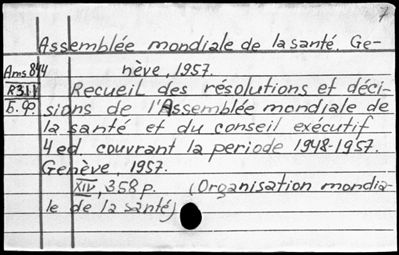 7
Assemblée mondiale de la santé. Ge-
Ams 844 nève, 1957.
R311 Recueil des résolutions et déci-
Б.Ф. sions de l'Assemblée mondiale de
la santé et du conseil exécutif
4 ed, couvrant la periode 1948-1957.
Genève, 1957.
XIV, 358 p. (Organisation mondia-
le de la santé)